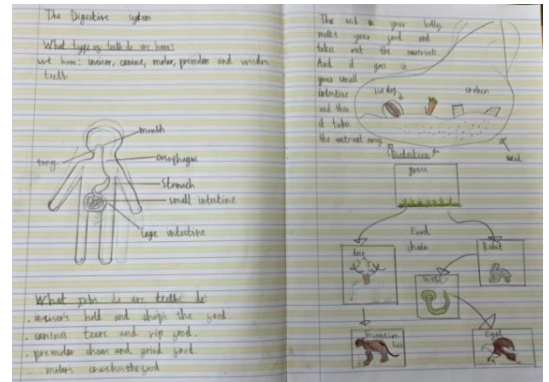 The Digestive system
What type of teeth do we have:
we have: incisor, canine, molar, premolar and wisdom
teeth
mouth
tong
oesophagus
Stomach
small intestine
large intestine
What jobs do are teeth do:
. incisors hold and chops the food.
. canines tears and rip food.
. premolar chews and grind food.
molars crushes the food
The acid in your belly
melts your food and
takes out the nutrients
And it goes in
your small
intestine
and then
it takes
the nutrient away
chicken
acid
grass
Food
chain
Rabit